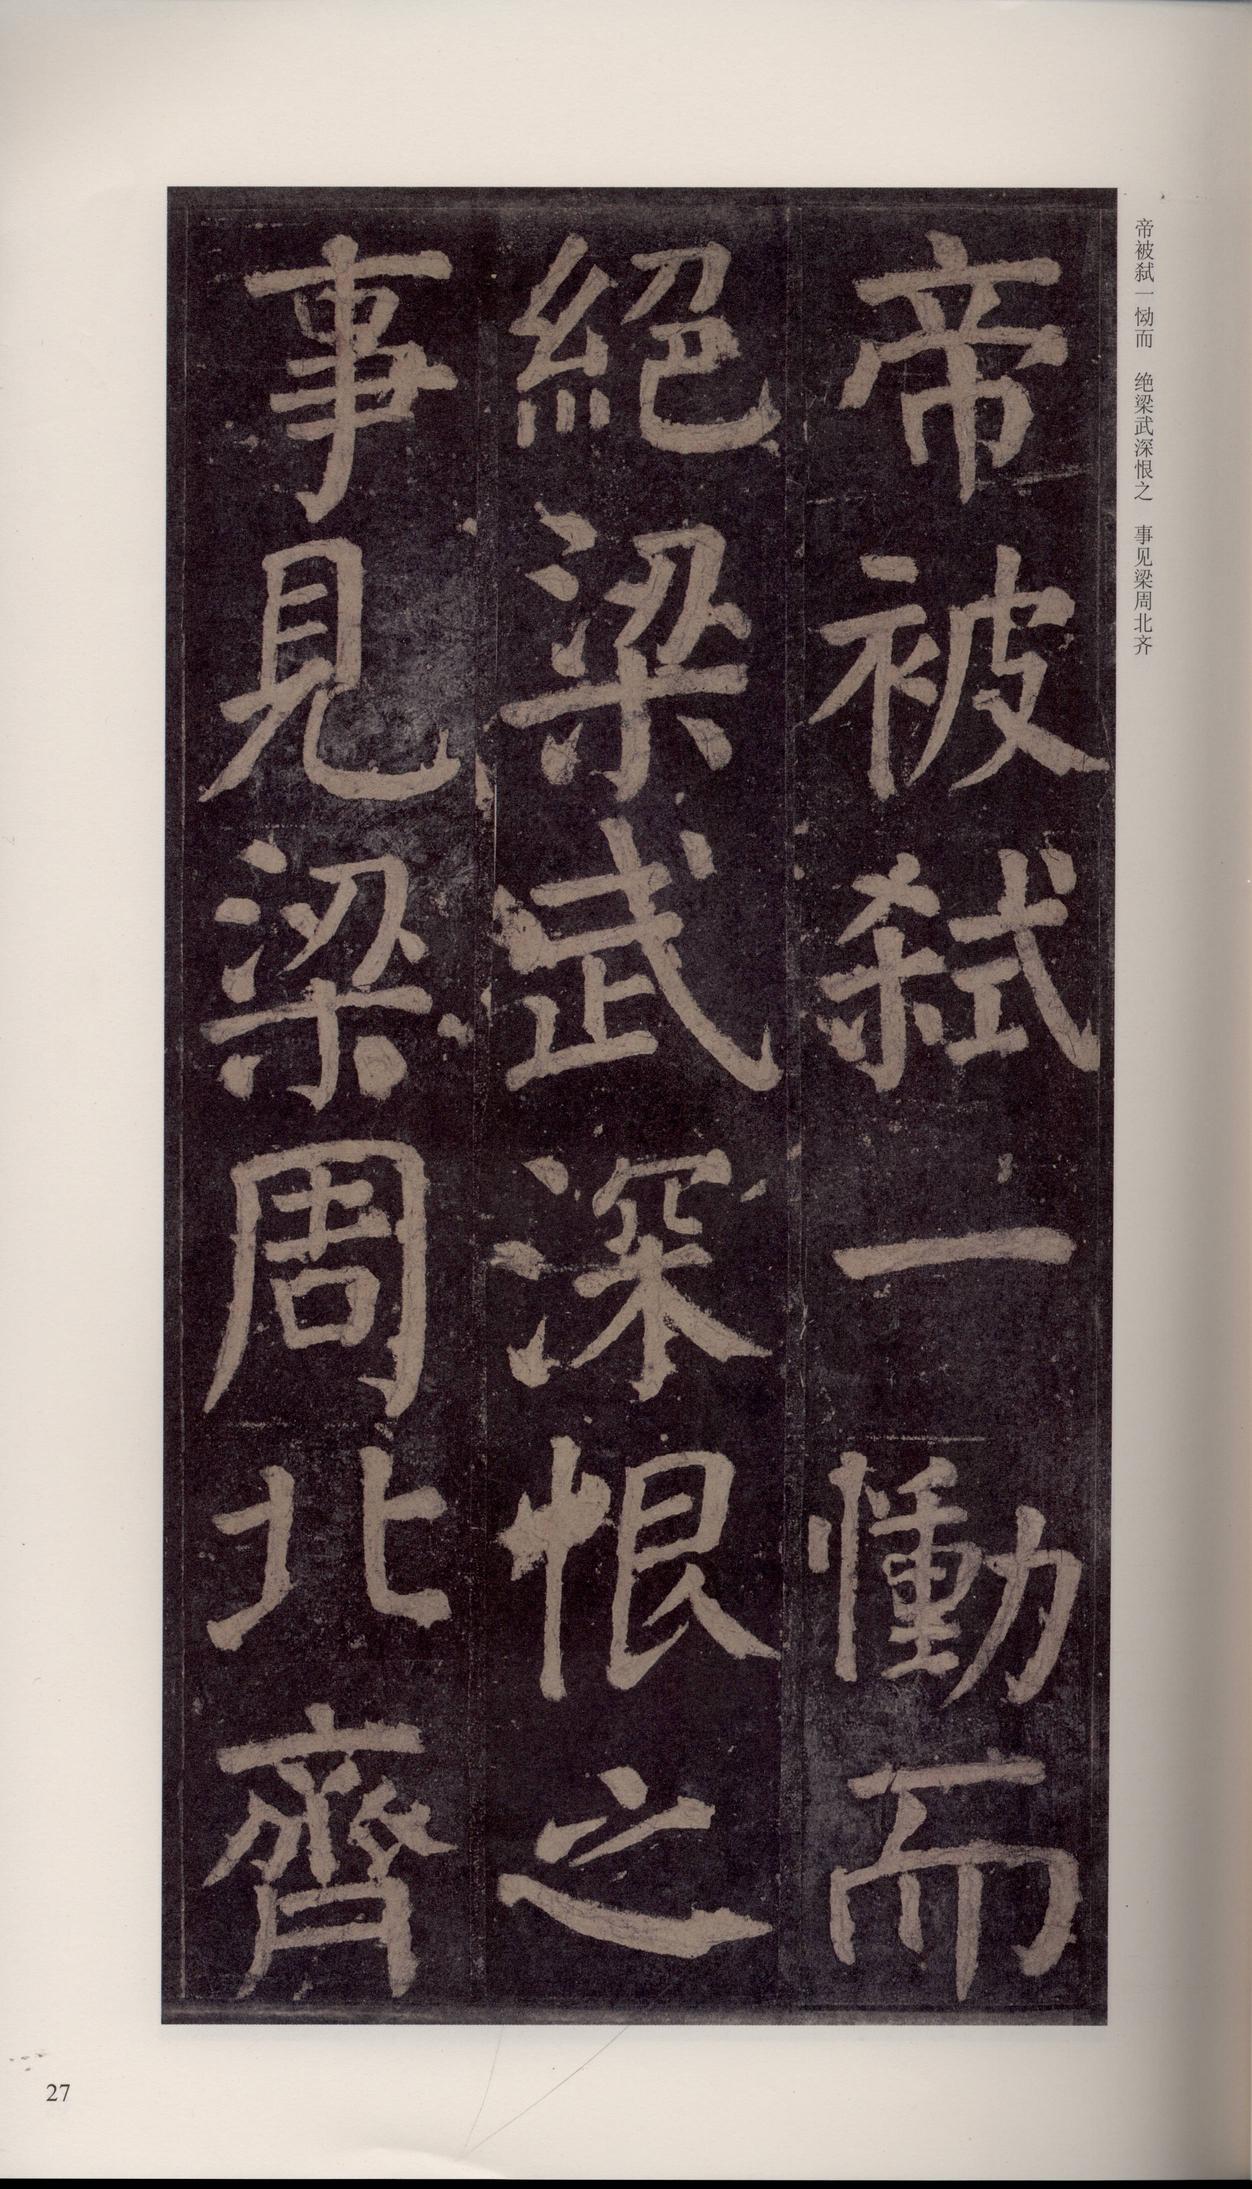 帝被弑一恸而　绝梁武深恨之　事见梁周北齐
帝被弑一慟而
絕梁武深恨之
事見梁周北齊
27